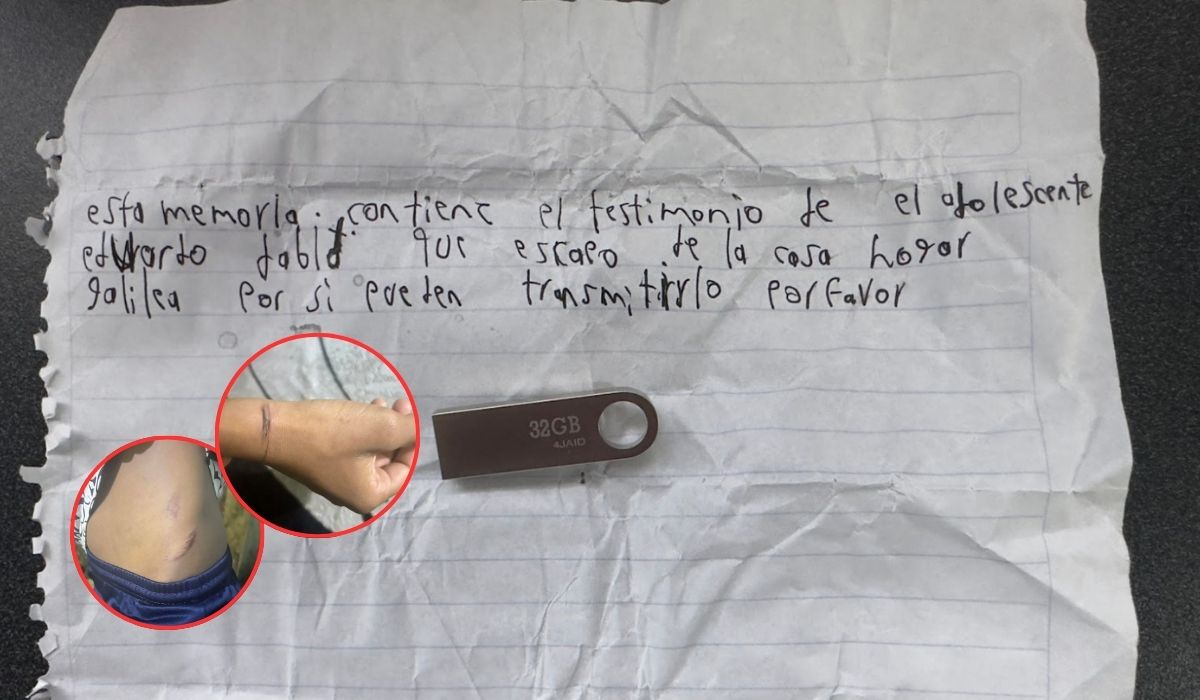 esta memoria. contiene el testimonio de el adolescente
eduardo dabid que escapo de la casa hogar
galilea por si pueden transmitirlo porfavor
32GB
4JAID